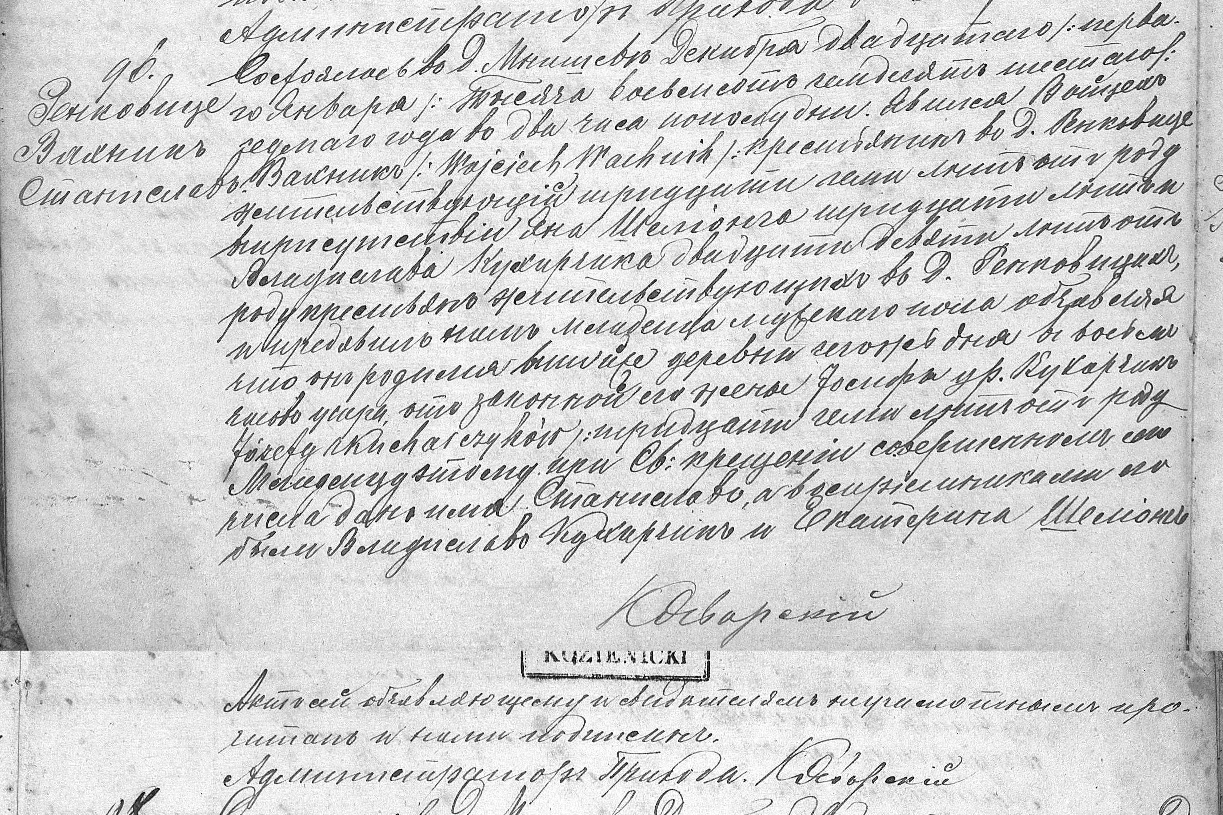 Администраторъ Прихода
96.
Ренковице
Вахникъ
Станиславъ
Состоялось въ Д. Мнишевъ Декабря двадцатаго /: перва-
го Января /: Тысяча восемсотъ семдесятъ шестаго /:
седмаго года во два часа пополудни. Явился Войцехъ
Вахникъ /: Wojciech Wachnik /: крестьянинъ во Д. Ренковице
жительствующій тридцати семи лѣтъ отъ роду
въ присутствіи Яна Шеліонга тридцати лѣтъ и
Владислава Кухарчика двадцати девяти лѣтъ отъ
роду крестьянъ жительствующихъ во Д. Ренковицахъ,
и предявилъ намъ младенца мужскаго пола объявляя
что онъ родился въ деревни сегожъ дня въ восемь
часовъ утра, отъ законной его жены Іосифы ур. Кухарчикъ
Józefy Kucharczyków /: тридцати семи лѣтъ отъ роду
Младенцу этому при Св: крещеніи совершенномъ сего
числа дано имя Станиславъ, а воспріемниками его
были Владиславъ Кухарчикъ и Екатерина Шеліонгъ
KOZIENICKI
Актъ сей объявляющему и свидѣтелямъ неграмотнымъ про-
читанъ и нами подписанъ.
Администраторъ Прихода.